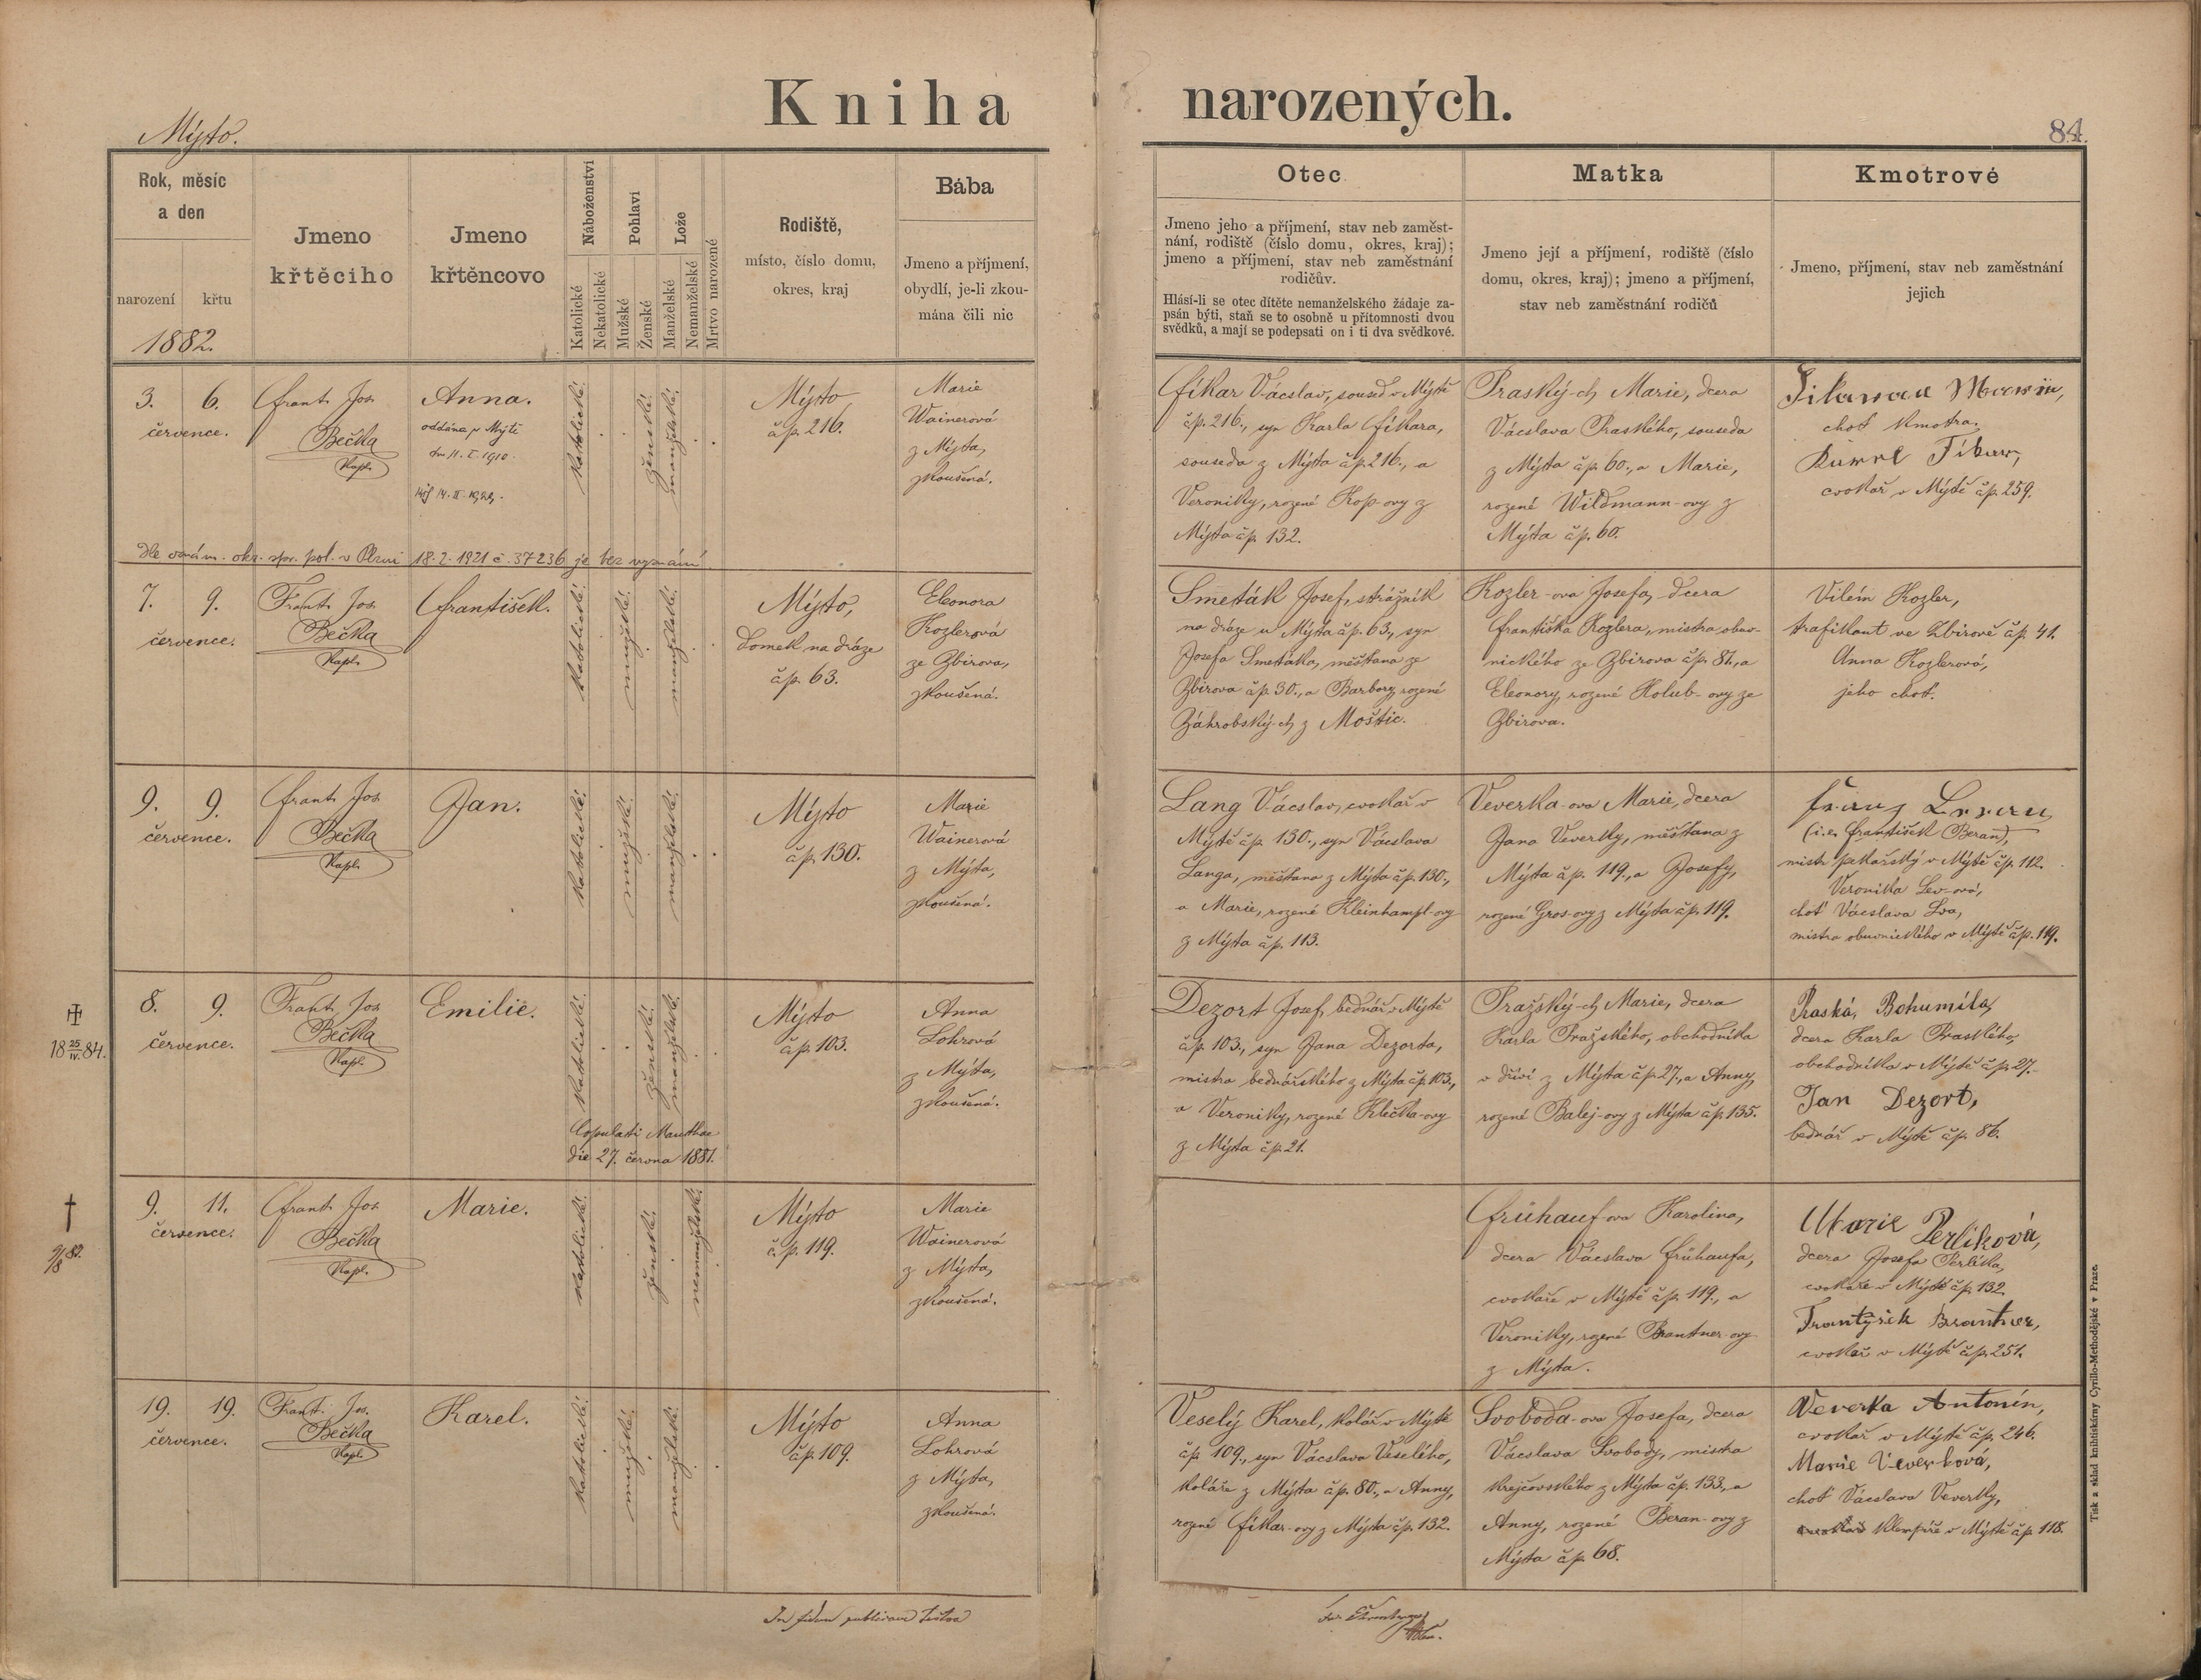 Kniha narozených.
Mýto.
84.
Rok, měsíc
a den
narození
křtu
1882.
Jmeno
křtěciho
Jmeno
křtěncovo
Náboženství
Katolické
Nekatolické
Pohlaví
Mužské
Ženské
Lože
Manželské
Nemanželské
Mrtvo narozené
Rodiště,
místo, číslo domu,
okres, kraj
Bába
Jmeno a příjmení,
obydlí, je-li zkou-
mána čili nic
Otec
Jmeno jeho a příjmení, stav neb zaměst-
nání, rodiště (číslo domu, okres, kraj);
jmeno a příjmení, stav neb zaměstnání
rodičův.
Hlásí-li se otec dítěte nemanželského žádaje za-
psán býti, staň se to osobně u přítomnosti dvou
svědků, a mají se podepsati on i ti dva svědkové.
Matka
Jmeno její a příjmení, rodiště (číslo
domu, okres, kraj); jmeno a příjmení,
stav neb zaměstnání rodičů
Kmotrové
Jmeno, příjmení, stav neb zaměstnání
jejich
3. 6.
července.
Frant. Jos.
Bečka
Kapl.
Anna.
oddána v Mýtě
dne 11. I. 1910.
katolické.
ženské.
manželské.
Mýto
čp. 216.
Marie
Wainerová
z Mýta,
zkoušená.
Fikar Vácslav, soused v Mýtě
čp. 216., syn Karla Fikara,
souseda z Mýta čp. 216., a
Veroniky, rozené Kop-ovy z
Mýta čp. 132.
Praský-ch Marie, dcera
Vácslava Praského, souseda
z Mýta čp. 60., a Marie,
rozené Wildmann-ovy z
Mýta čp. 60.
choť kmotra.
Karel Fikar,
cvokař v Mýtě čp. 259.
Dle oznám. okr. spr. pol. v Plzni 18. 2. 1921 č. 37236 je bez vyznání
7. 9.
července.
Frant. Jos.
Bečka
Kapl.
František.
katolické.
mužské.
manželské.
Mýto,
domek na dráze
čp. 63.
Eleonora
Kozlerová
ze Zbirova,
zkoušená.
Smeták Josef, strážník
na dráze u Mýta čp. 63., syn
Josefa Smetáka, měšťana ze
Zbirova čp. 30., a Barbory, rozené
Záhrobský-ch z Moštic.
Kozler-ova Josefa, dcera
Františka Kozlera, mistra obuv-
nického ze Zbirova čp. 81., a
Eleonory, rozené Holub-ovy ze
Zbirova.
Vilém Kozler,
trafikant ve Zbirově čp. 41.
Anna Kozlerová,
jeho choť.
9. 9.
července.
Frant. Jos.
Bečka
Kapl.
Jan.
katolické.
mužské.
manželské.
Mýto
čp. 130.
Marie
Wainerová
z Mýta,
zkoušená.
Lang Vácslav, cvokař v
Mýtě čp. 130., syn Vácslava
Langa, měšťana z Mýta čp. 130.,
a Marie, rozené Kleinhampl-ovy
z Mýta čp. 113.
Veverka-ova Marie, dcera
Jana Veverky, měšťana z
Mýta čp. 119., a Josefy,
rozené Gros-ovy z Mýta čp. 119.
Franz Beran
(i.e. František Beran),
mistr pekařský v Mýtě čp. 112.
Veronika Lev-ová,
choť Vácslava Lva,
mistra obuvnického v Mýtě čp. 119.
18 25/IV. 84.
8. 9.
července.
Frant. Jos.
Bečka
Kapl.
Emilie.
katolické.
ženské.
manželské.
Copulati Mauthae
die 27. června 1881.
Mýto
čp. 103.
Anna
Lohrová
z Mýta,
zkoušená.
Dezort Josef, bednář v Mýtě
čp. 103., syn Jana Dezorta,
mistra bednářského z Mýta čp. 103.,
a Veroniky, rozené Klečka-ovy
z Mýta čp. 21.
Pražský-ch Marie, dcera
Karla Pražského, obchodníka
v dříví z Mýta čp. 27., a Anny,
rozené Balej-ovy z Mýta čp. 135.
Praská, Bohumila,
dcera Karla Praského,
obchodníka v Mýtě čp. 27.
Jan Dezort,
bednář v Mýtě čp. 86.
†
9/8 82.
9. 11.
července.
Frant. Jos.
Bečka
Kapl.
Marie.
katolické.
ženské.
nemanželské.
Mýto
č.p. 119.
Marie
Wainerová
z Mýta,
zkoušená.
Frühauf-ova Karolina,
dcera Vácslava Frühaufa,
cvokaře v Mýtě čp. 119., a
Veroniky, rozené Brantner-ovy
z Mýta.
Marie Perlíková,
dcera Josefa Perlíka,
cvokaře v Mýtě čp. 132.
Frantyšek Brantner,
cvokař v Mýtě čp. 251.
19. 19.
července.
Frant. Jos.
Bečka
Kapl.
Karel.
katolické.
mužské.
manželské.
Mýto
čp. 109.
Anna
Lohrová
z Mýta,
zkoušená.
Veselý Karel, kolář v Mýtě
čp. 109., syn Vácslava Veselého,
koláře z Mýta čp. 80., a Anny,
rozené Fikar-ovy z Mýta čp. 132.
Svoboda-ova Josefa, dcera
Vácslava Svobody, mistra
krejčovského z Mýta čp. 133., a
Anny, rozené Beran-ovy z
Mýta čp. 68.
Veverka Antonín,
cvokař v Mýtě čp. 246.
Marie Veverková,
choť Vácslava Veverky,
klempíře v Mýtě čp. 118.
Tisk a sklad knihtiskárny Cyrillo-Methodějské v Praze.